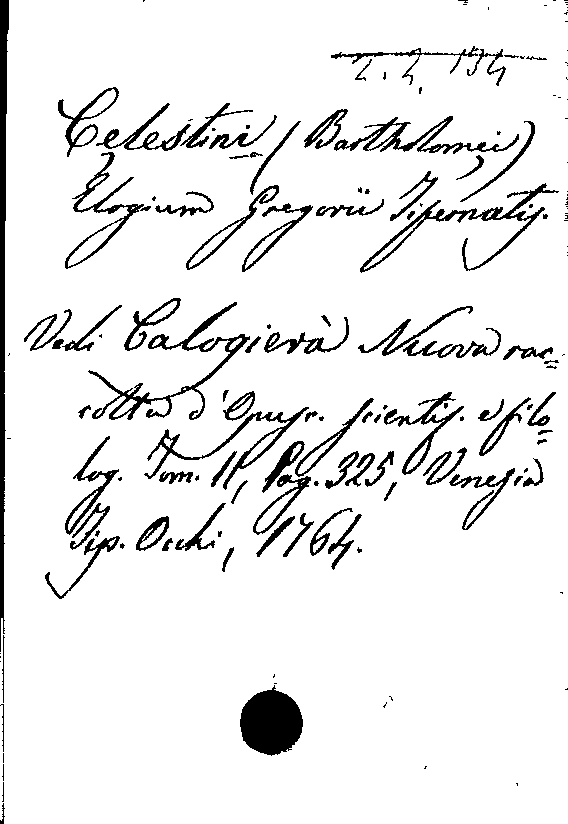 2. 2. 134
Celestini (Bartholomei)
Elogium Gregorii Tifernatis.
Vedi Calogierà Nuova rac=
colta d'Opusc. scientif. e filo=
log. Tom. 11, Pag. 325, Venezia
Tip. Occhi, 1764.